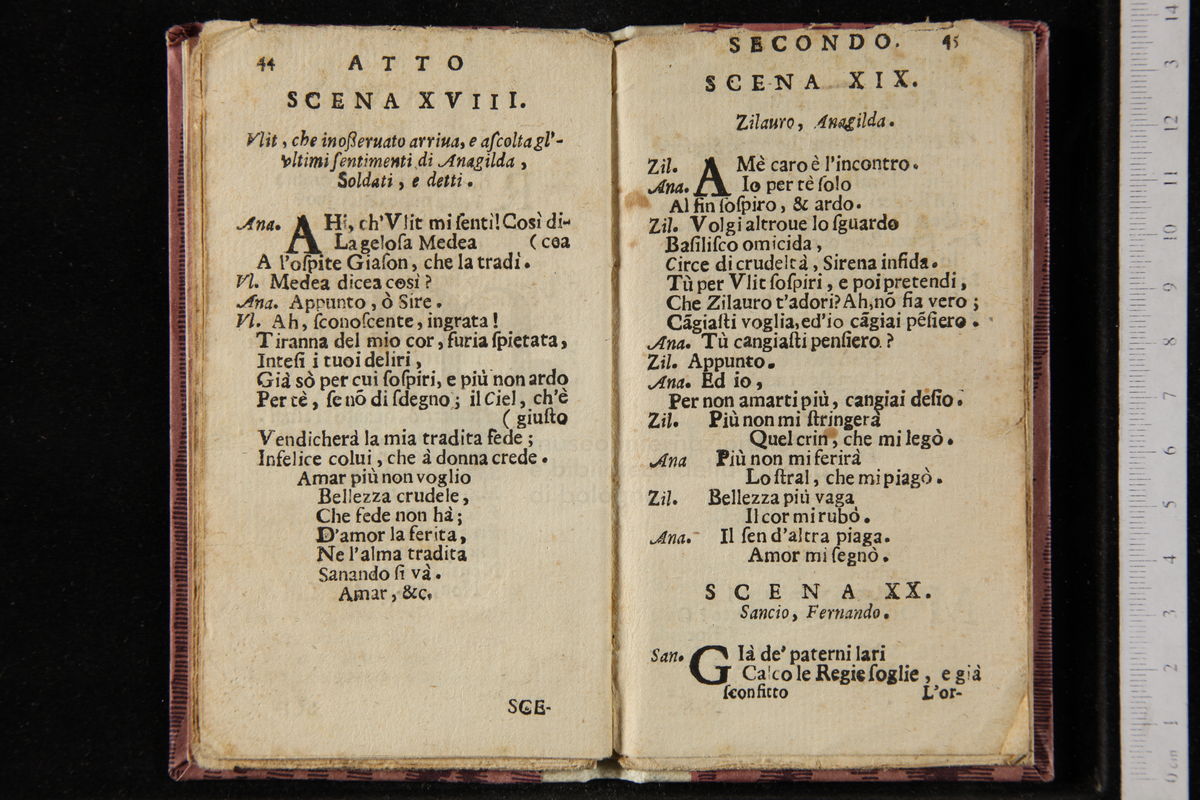 44 ATTO
SCENA XVIII.
Vlit, che inoſſeruato arriua, e aſcolta gl'-
vltimi ſentimenti di Anagilda,
Soldati, e detti.
Ana. AHi, ch'Vlit mi ſenti! Così di-
La geloſa Medea (cea
A l'oſpite Giaſon, che la tradì.
Vl. Medea dicea così?
Ana. Appunto, ò Sire.
Vl. Ah, ſconoſcente, ingrata!
Tiranna del mio cor, furia ſpietata,
Inteſi i tuoi deliri,
Già sò per cui ſoſpiri, e più non ardo
Per tè, ſe nõ di ſdegno; il Ciel, ch'è
(giuſto
Vendicherà la mia tradita fede;
Infelice colui, che à donna crede.
Amar più non voglio
Bellezza crudele,
Che fede non hà;
D'amor la ferita,
Ne l'alma tradita
Sanando ſi và.
Amar, &c.
SCE-
SECONDO. 45
SCENA XIX.
Zilauro, Anagilda.
Zil. A Mè caro è l'incontro.
Ana. Io per tè ſolo
Al fin ſoſpiro, & ardo.
Zil. Volgi altroue lo ſguardo
Baſiliſco omicida,
Circe di crudeltà, Sirena infida.
Tù per Vlit ſoſpiri, e poi pretendi,
Che Zilauro t'adori? Ah, nõ fia vero;
Cãgiaſti voglia, ed'io cãgiai pẽſiero.
Ana. Tù cangiaſti penſiero?
Zil. Appunto.
Ana. Ed io,
Per non amarti più, cangiai deſio.
Zil. Più non mi ſtringerà
Quel crin, che mi legò.
Ana Più non mi ferirà
Lo ſtral, che mi piagò.
Zil. Bellezza più vaga
Il cor mi rubò.
Ana. Il ſen d'altra piaga.
Amor mi ſegnò.
SCENA XX.
Sancio, Fernando.
San. GIà de' paterni lari
Calco le Regie ſoglie, e già
ſconfitto L'or-
0 cm 1 2 3 4 5 6 7 8 9 10 11 12 3 14